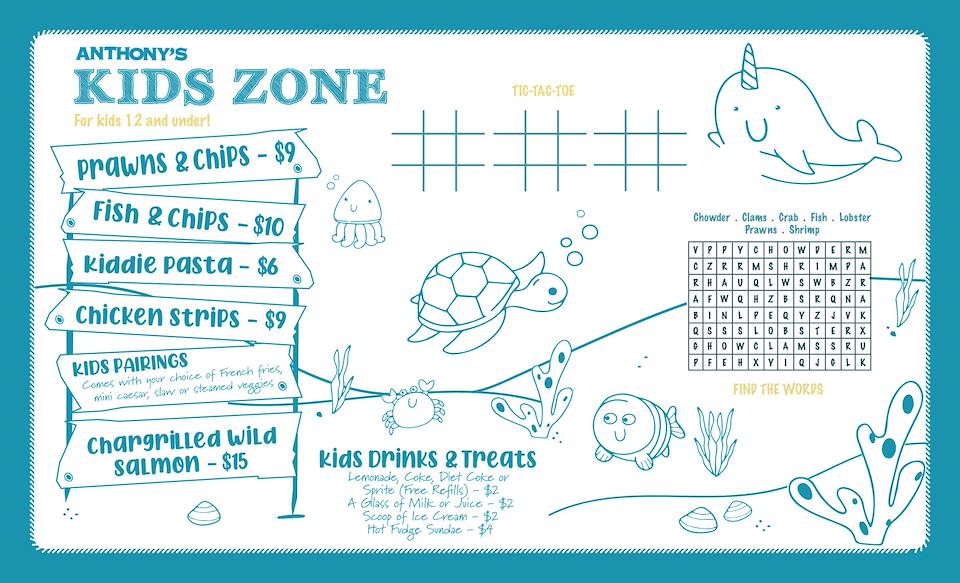 ANTHONY'S
KIDS ZONE
For kids 12 and under!
Prawns & Chips - $9
Fish & Chips - $10
Kiddie Pasta - $6
Chicken Strips - $9
KIDS PAIRINGS
Comes with your choice of French fries,
mini caesar, slaw or steamed veggies
Chargrilled Wild
Salmon - $15
TIC-TAC-TOE
Chowder . Clams . Crab . Fish . Lobster
Prawns . Shrimp
V P P Y C H O W D E R M
C Z R R M S H R I M P A
R H A U Q L W S W B Z R
A F W Q H Z B S R Q N A
B I N L P E Q Y Z J V K
Q S S S L O B S T E R X
G H O W C L A M S S R U
P F E H X Y I Q J G L K
FIND THE WORDS
Kids Drinks & Treats
Lemonade, Coke, Diet Coke or
Sprite (Free Refills) - $2
A Glass of Milk or Juice - $2
Scoop of Ice Cream - $2
Hot Fudge Sundae - $4